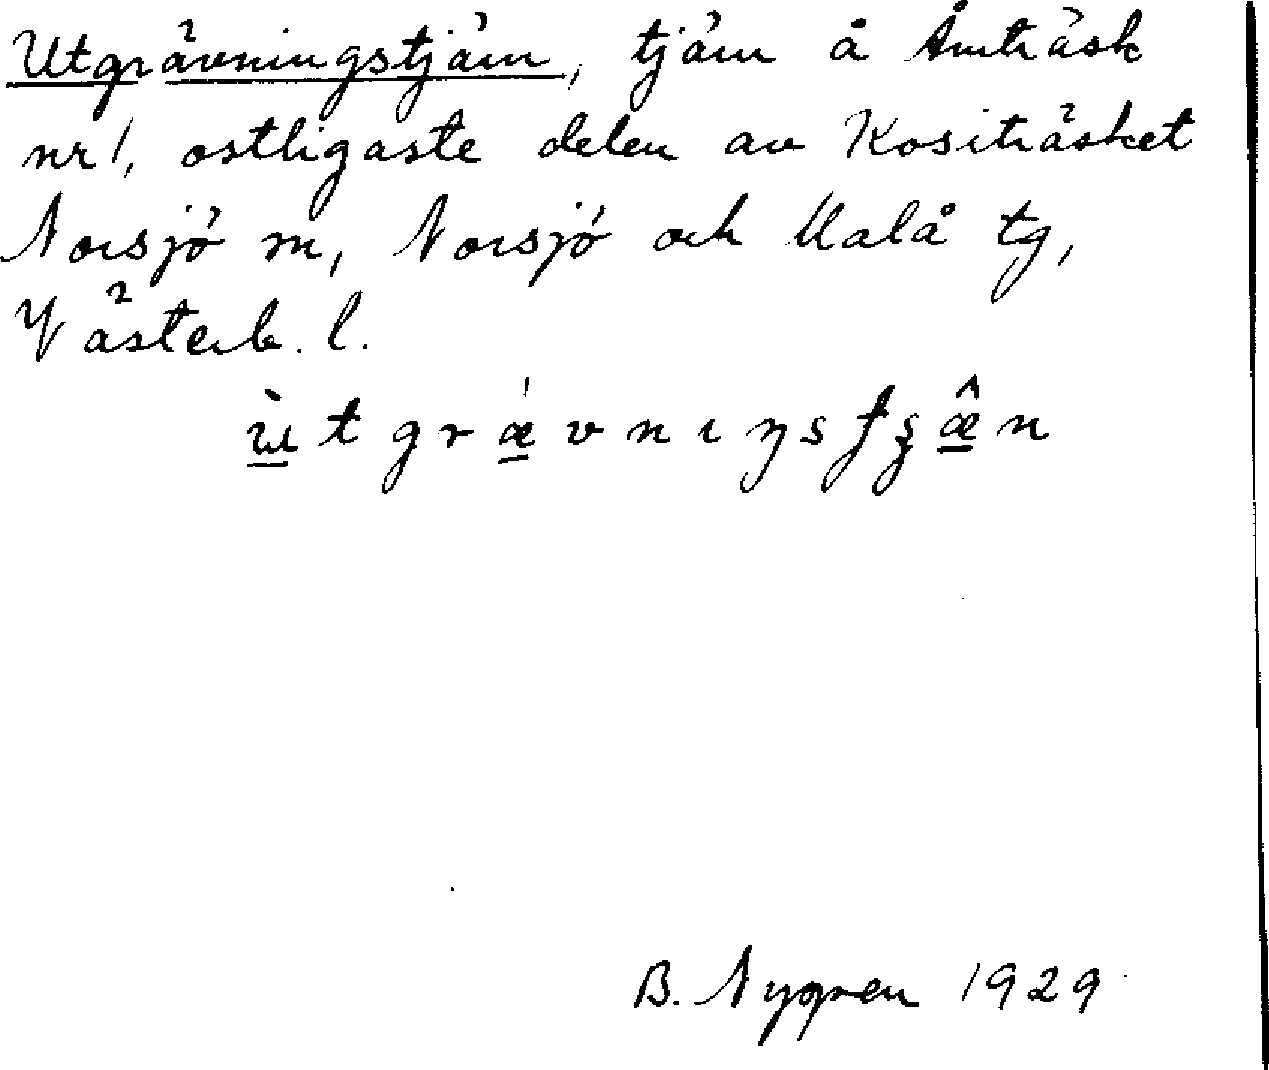 Utgrävningstjärn, tjärn å Åmträsk
nr 1, ostligaste delen av Kositräsket
Norsjö m, Norsjö och Malå tg,
Västerb. l.
B. Nygren 1929